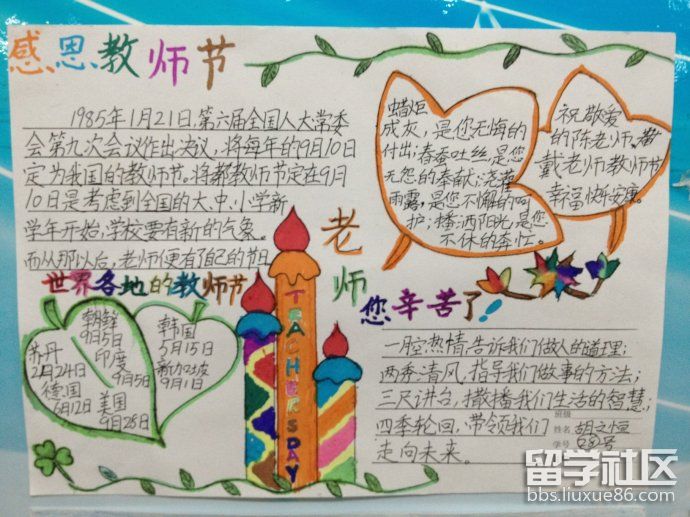 感恩教师节
1985年1月21日,第六届全国人大常委
会第九次会议作出决议,将每年的9月10日
定为我国的教师节。将教师节定在9月
10日是考虑到全国的大、中、小学新
学年开始,学校要有新的气象。
而从那以后,老师便有了自己的节日
蜡炬
成灰,是您无悔的
付出;春蚕吐丝,是您
无怨的奉献;浇灌
雨露,是您不懈的呵
护;播洒阳光,是您
不休的奔忙。
祝敬爱
的陈老师、
戴老师教师节
幸福快乐安康。
世界各地的教师节
朝鲜
9月5日
苏丹
2月24日
印度
9月5日
德国
6月12日
美国
9月28日
韩国
5月15日
新加坡
9月1日
TEACHERSDAY
老师
您辛苦了!
一腔热情,告诉我们做人的道理;
两季清风,指导我们做事的方法;
三尺讲台,撒播我们生活的智慧;
四季轮回,带领我们
走向未来。
班级
姓名 胡文恒
学号
留学社区
bbs.liuxue86.com